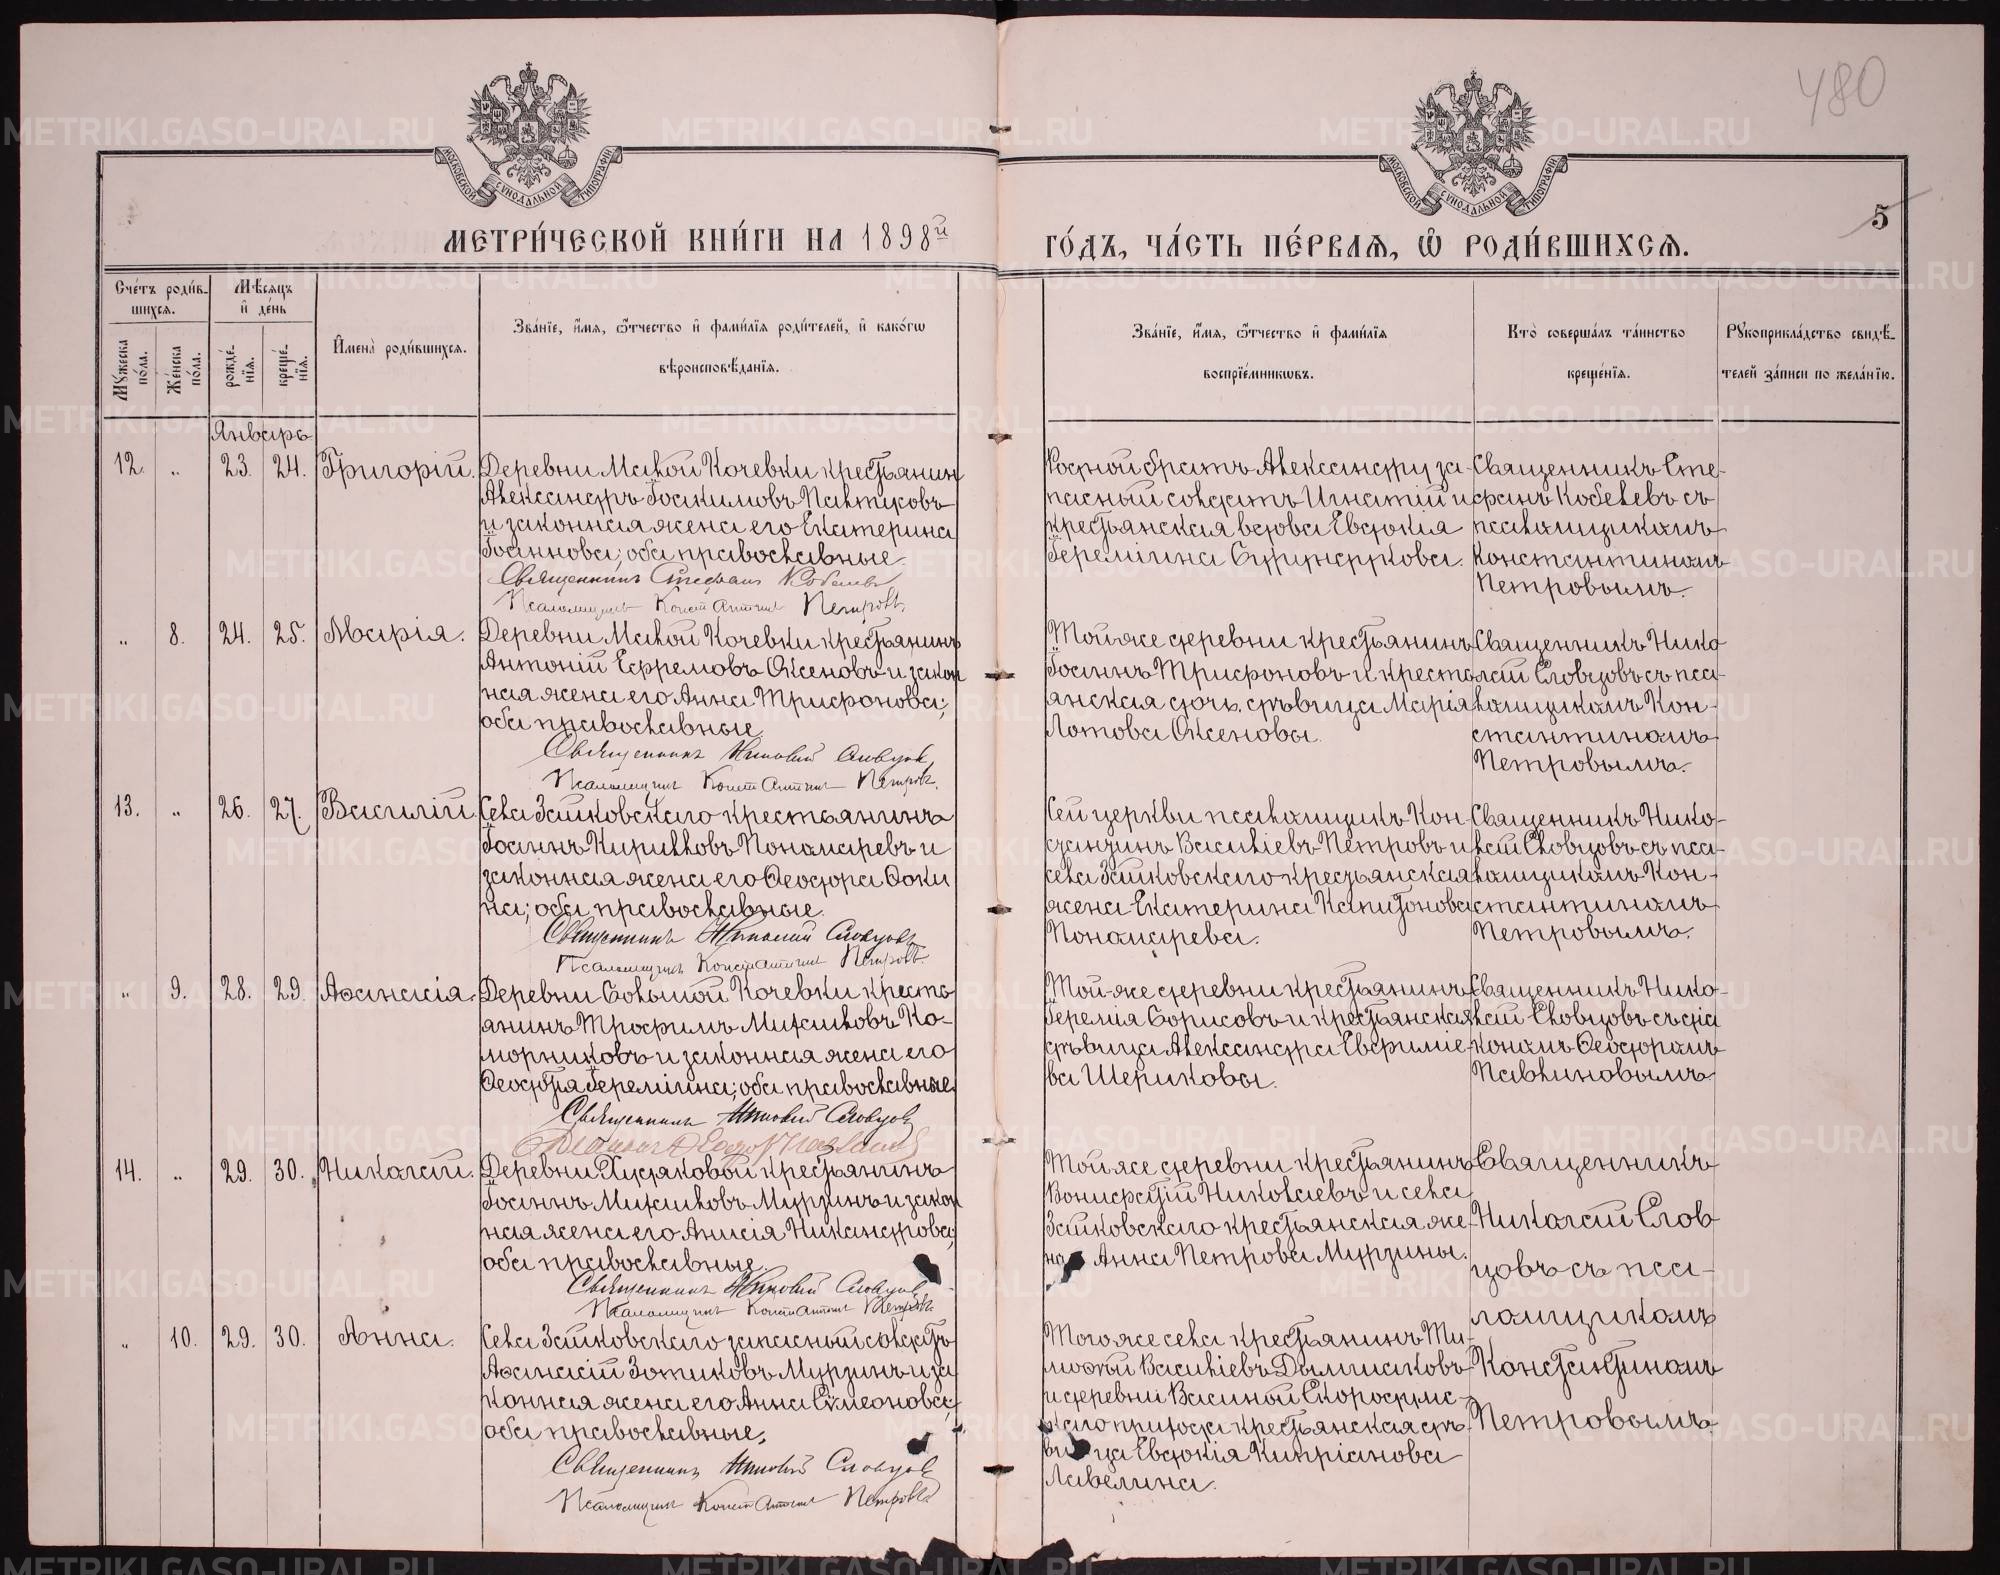 480
МОСКОВСКОЙ СѴНОДАЛЬНОЙ ТИПОГРАФІИ
МОСКОВСКОЙ СѴНОДАЛЬНОЙ ТИПОГРАФІИ
5
МЕТРИ́ЧЕСКОЙ КНИ́ГИ НА 1898й
ГО́ДЪ, ЧА́СТЬ ПЕ́РВАѦ, Ѡ РОДИ́ВШИХСѦ.
Сче́тъ роди́в-
шихсѧ.
Мѣсѧцъ
и де́нь
Мꙋжеска по́ла.
Же́нска по́ла.
рожде́-
нїѧ.
креще́-
нїѧ.
Имена̀ роди́вшихсѧ.
Зва́нїе, и́мѧ, ѻ́тчество и фами́лїѧ роди́телей, и како́гѡ
вѣроисповѣ́данїѧ.
Зва́нїе, и́мѧ, ѻ́тчество и фами́лїѧ
воспрїе́мникѡвъ.
Кто̀ соверша́лъ та́инство
креще́нїѧ.
Рꙋкоприкла́дство свидѣ́-
телей за́писи по жела́нїю.
Январь
12. „ 23. 24. Григорій.
Деревни Малой Кочевки крестьянин
Александръ Іоакимовъ Пантусовъ
и законная жена его Екатерина
Іоаннова; оба православные.
Священникъ Стефанъ Кобелевъ
Псаломщикъ Константинъ Петровъ.
Родной братъ Александру за-
пасный солдатъ Игнатій и
крестьянская вдова Евдокія
Іереміина Бурундукова.
Священникъ Сте-
фанъ Кобелевъ съ
псаломщикомъ
Константиномъ
Петровымъ.
„ 8. 24. 25. Марія.
Деревни Малой Кочевки крестьянинъ
Антоній Ефремовъ Оксеновъ и закон
ная жена его Анна Трифонова;
оба православные
Священникъ Николай Словцов
Псаломщикъ Константинъ Петров.
Той же деревни крестьянинъ
Іоаннъ Трифоновъ и кресть
янская дочь, дѣвица Марія
Лотова Оксеновы.
Священникъ Нико
лай Словцовъ съ пса-
ломщикомъ Кон-
стантиномъ
Петровымъ.
13. „ 26. 27. Василій.
Села Зайковскаго крестьянинъ
Іоаннъ Кирилловъ Пономаревъ и
законная жена его Ѳеодора Ѳоки
на; оба православные.
Священникъ Николай Словцовъ
Псаломщикъ Константинъ Петровъ.
Сей церкви псаломщикъ Кон-
стантинъ Василіевъ Петровъ и
села Зайковскаго крестьянская
жена Екатерина Капитонова
Пономарева.
Священникъ Нико-
лай Словцовъ съ пса-
ломщикомъ Кон-
стантиномъ
Петровымъ.
„ 9. 28. 29. Аѳанасія.
Деревни Большой Кочевки кресть
янинъ Трофимъ Михаиловъ Ко-
морниковъ и законная жена его
Ѳеодотія Іереміина; оба православные.
Священникъ Николай Словцовъ
Діаконъ Ѳеодоръ Павлиновъ
Той-же деревни крестьянинъ
Іеремія Борисовъ и крестьянская
дѣвица Александра Евфиміе-
ва Шериховы.
Священникъ Нико-
лай Словцовъ съ діа
кономъ Ѳеодоромъ
Павлиновымъ
14. „ 29. 30. Николай.
Деревни Худяковой крестьянинъ
Іоаннъ Михаиловъ Мурзинъ и закон
ная жена его Анисія Никандрова;
оба православные.
Священникъ Николай Словцов
Псаломщикъ Константинъ Петровъ.
Той же деревни крестьянинъ
Вонифатій Николаевъ и села
Зайковскаго крестьянская же-
на Анна Петрова Мурзины.
Священникъ
Николай Слов
цовъ съ пса-
ломщикомъ
Константиномъ
Петровымъ.
„ 10. 29. 30. Анна.
Села Зайковскаго запасный солдатъ
Аѳанасій Зотиковъ Мурзинъ и за
конная жена его Анна Сѵмеонова;
оба православные.
Священникъ Николай Словцов
Псаломщикъ Константинъ Петровъ
Того же села крестьянинъ Ти-
моѳей Василіевъ Дымшаковъ
и деревни Васиной Скородумс-
каго прихода крестьянская дѣ-
вица Евдокія Кипріанова
Лавелина.